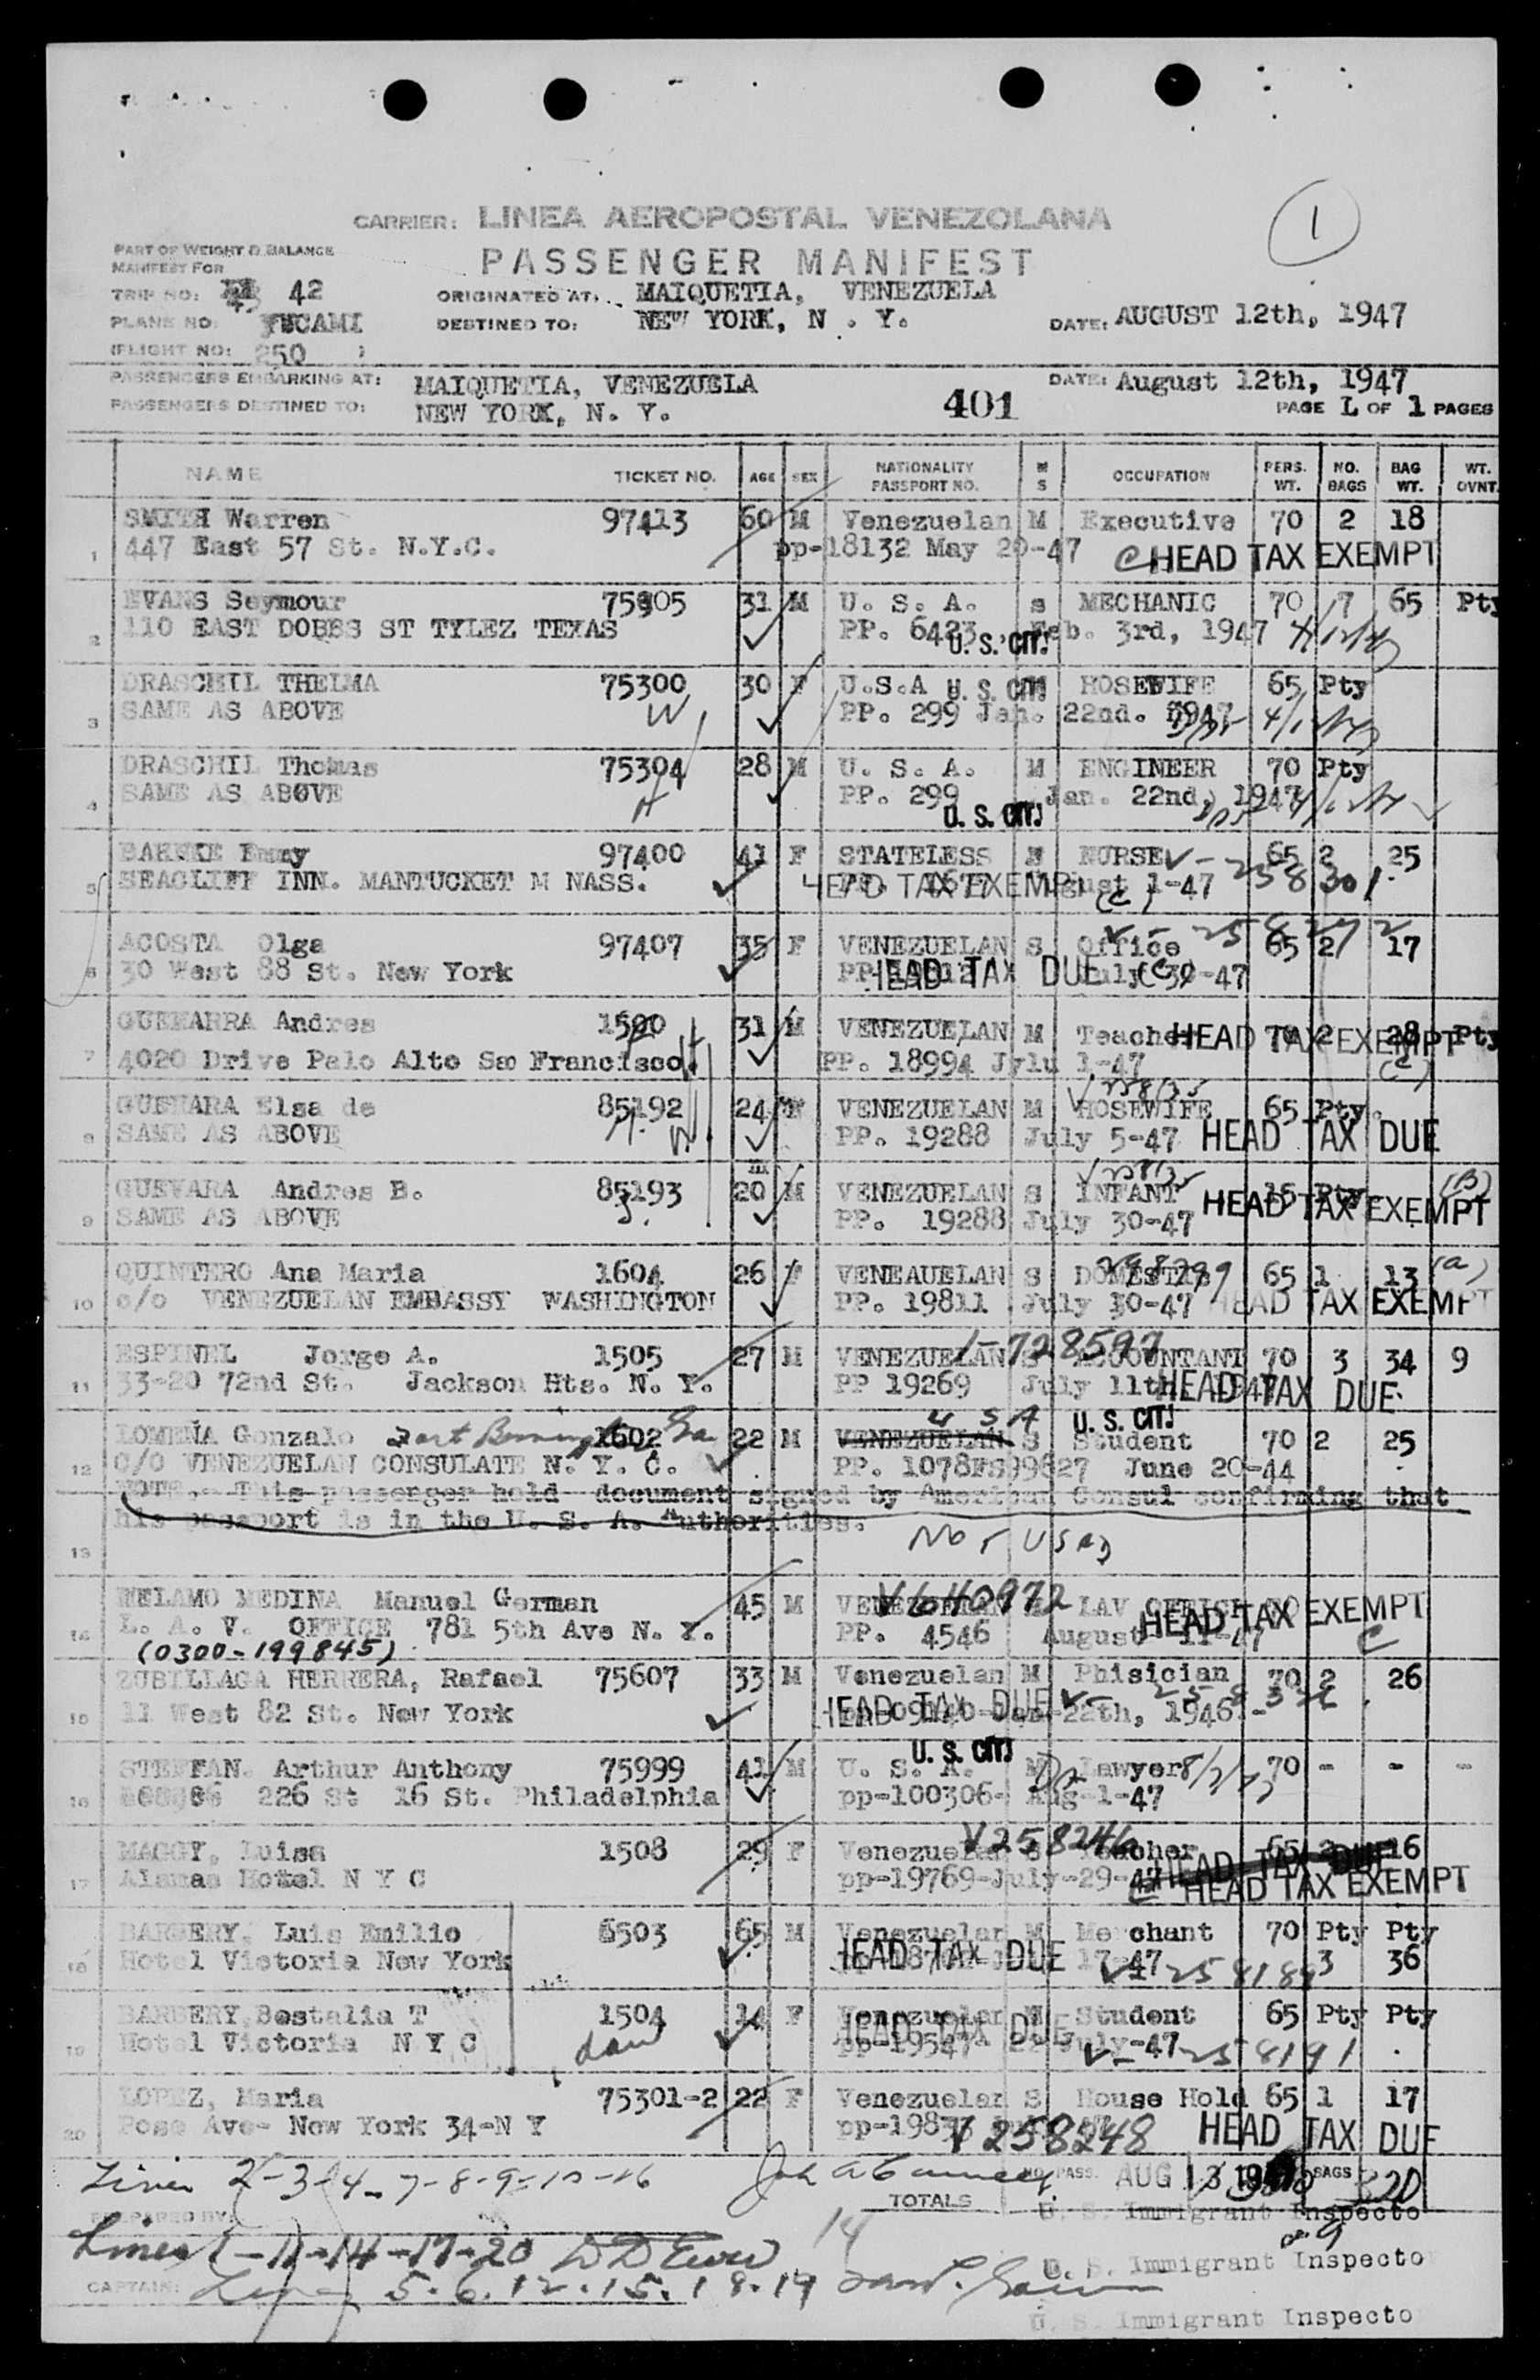 1
CARRIER: LINEA AEROPOSTAL VENEZOLANA
PART OF WEIGHT & BALANCE
MANIFEST FOR
PASSENGER MANIFEST
TRIP NO: 42
ORIGINATED AT: MAIQUETIA, VENEZUELA
PLANE NO: YVCAMI
DESTINED TO: NEW YORK, N . Y.
DATE: AUGUST 12th, 1947
FLIGHT NO: 250
PASSENGERS EMBARKING AT: MAIQUETIA, VENEZUELA
DATE: August 12th, 1947
PASSENGERS DESTINED TO: NEW YORK, N. Y.
401
PAGE 1 OF 1 PAGES
NAME TICKET NO. AGE SEX NATIONALITY PASSPORT NO. M S OCCUPATION PERS. WT. NO. BAGS BAG WT. WT. OVNT.
SMITH Warren 97413 60 M Venezuelan M Executive 70 2 18
1 447 East 57 St. N.Y.C. pp-18132 May 20-47 C HEAD TAX EXEMPT
EVANS Seymour 75905 31 M U. S. A. s MECHANIC 70 7 65 Pty
2 110 EAST DOBBS ST TYLEZ TEXAS PP. 6423 Feb. 3rd, 1947
U. S. CIT!
DRASCHIL THELMA 75300 30 F U.S.A U. S. CIT! HOSEWIFE 65 Pty
3 SAME AS ABOVE W PP. 299 Jan. 22nd. 1947
DRASCHIL Thomas 75304 28 M U. S. A. M ENGINEER 70 Pty
4 SAME AS ABOVE H PP. 299 Jan. 22nd, 1947
U. S. CIT!
97400 41 F STATELESS NURSE 65 2 25
5 SEACLIFF INN. MANTUCKET M NASS. HEAD TAX EXEMPT August 1-47 258301
(C)
ACOSTA Olga 97407 35 F VENEZUELAN S Office 65 2 17
6 30 West 88 St. New York HEAD TAX DUE July 30-47
GUEVARRA Andres 1500 31 M VENEZUELAN M Teacher 70 2 28 Pty
HEAD TAX EXEMPT
7 4020 Drive Palo Alto San Francisco. PP. 18994 Jylu 1-47 (C)
GUEVARA Elsa de 85192 24 F VENEZUELAN M HOSEWIFE 65 Pty.
8 SAME AS ABOVE W. PP. 19288 July 5-47 HEAD TAX DUE
GUEVARA Andres B. 85193 20 M VENEZUELAN S INFANT 15 Pty. (B)
9 SAME AS ABOVE PP. 19288 July 30-47 HEAD TAX EXEMPT
QUINTERO Ana Maria 1604 26 F VENEAUELAN S DOMESTIC 65 1 13 (a)
10 c/o VENEZUELAN EMBASSY WASHINGTON PP. 19811 July 30-47 HEAD TAX EXEMPT
1-728597
ESPINEL Jorge A. 1505 27 M VENEZUELAN S ACCOUNTANT 70 3 34 9
11 33-20 72nd St. Jackson Hts. N. Y. PP 19269 July 11th, 1947 HEAD TAX DUE
U S A U. S. CIT!
LOMENA Gonzalo 1602 Ga 22 M VENEZUELAN S Student 70 2 25
12 C/O VENEZUELAN CONSULATE N. Y. C. PP. 1078FS99627 June 20-44
NOTE.- This passenger hold document signed by American Consul confirming that
his passport is in the U. S. A. Authorities.
13 NOT USED
MELAMO MEDINA Manuel German 45 M V640972 LAV
14 L. A. V. OFFICE 781 5th Ave N. Y. PP. 4546 August 11-47 HEAD TAX EXEMPT
C
(0300-199845)
ZUBILLAGA HERRERA, Rafael 75607 33 M Venezuelan M Phisician 70 2 26
15 11 West 82 St. New York HEAD TAX DUE 22th, 1946
U. S. CIT!
STEFFAN. Arthur Anthony 75999 41 M U. S. A. M Lawyer 70 - - -
16 226 St 16 St. Philadelphia pp-100306- Aug-1-47
V258246
MAGGY, Luisa 1508 29 F Venezuelan S Teacher 65 2 16
HEAD TAX DUE
17 Alamas Hotel N Y C pp-19769-July-29-47 C HEAD TAX EXEMPT
BARBERY, Luis Emilio 6503 65 M Venezuelan M Merchant 70 Pty Pty
18 Hotel Victoria New York HEAD TAX DUE 17-47 258189 3 36
BARBERY, Bestalia T 1504 14 F Venezuelan Student 65 Pty Pty
HEAD TAX DUE
19 Hotel Victoria N Y C pp-19547- 22-July-47 258191
LOPEZ, Maria 75301-2 22 F Venezuelan S House Hold 65 1 17
20 Pose Ave- New York 34-N Y V 258248 HEAD TAX DUE
Lines 2-3-4-7-8-9-10-16 NO. PASS. AUG 13 1947 BAGS 320
TOTALS
PREPARED BY: U. S. Immigrant Inspector
Lines 1-11-14-17-20 14
U. S. Immigrant Inspector
CAPTAIN: Lines 5.6.12.15.18.19
U. S. Immigrant Inspector